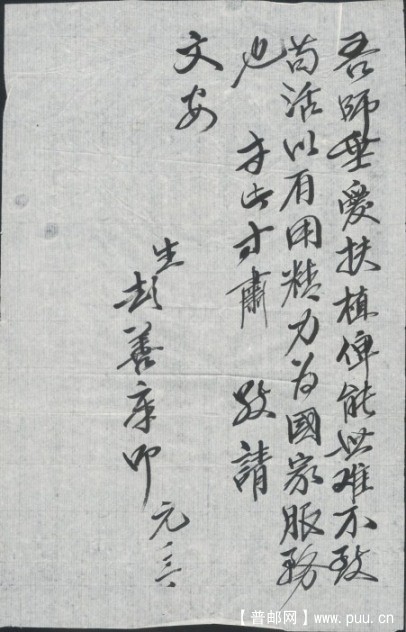 吾師垂愛扶植俾能世难不致
苟活以有用精力为國家服務
也 方此寸肅 敬請
文安
生彭善承叩 元、六
【普邮网】www.puu.cn